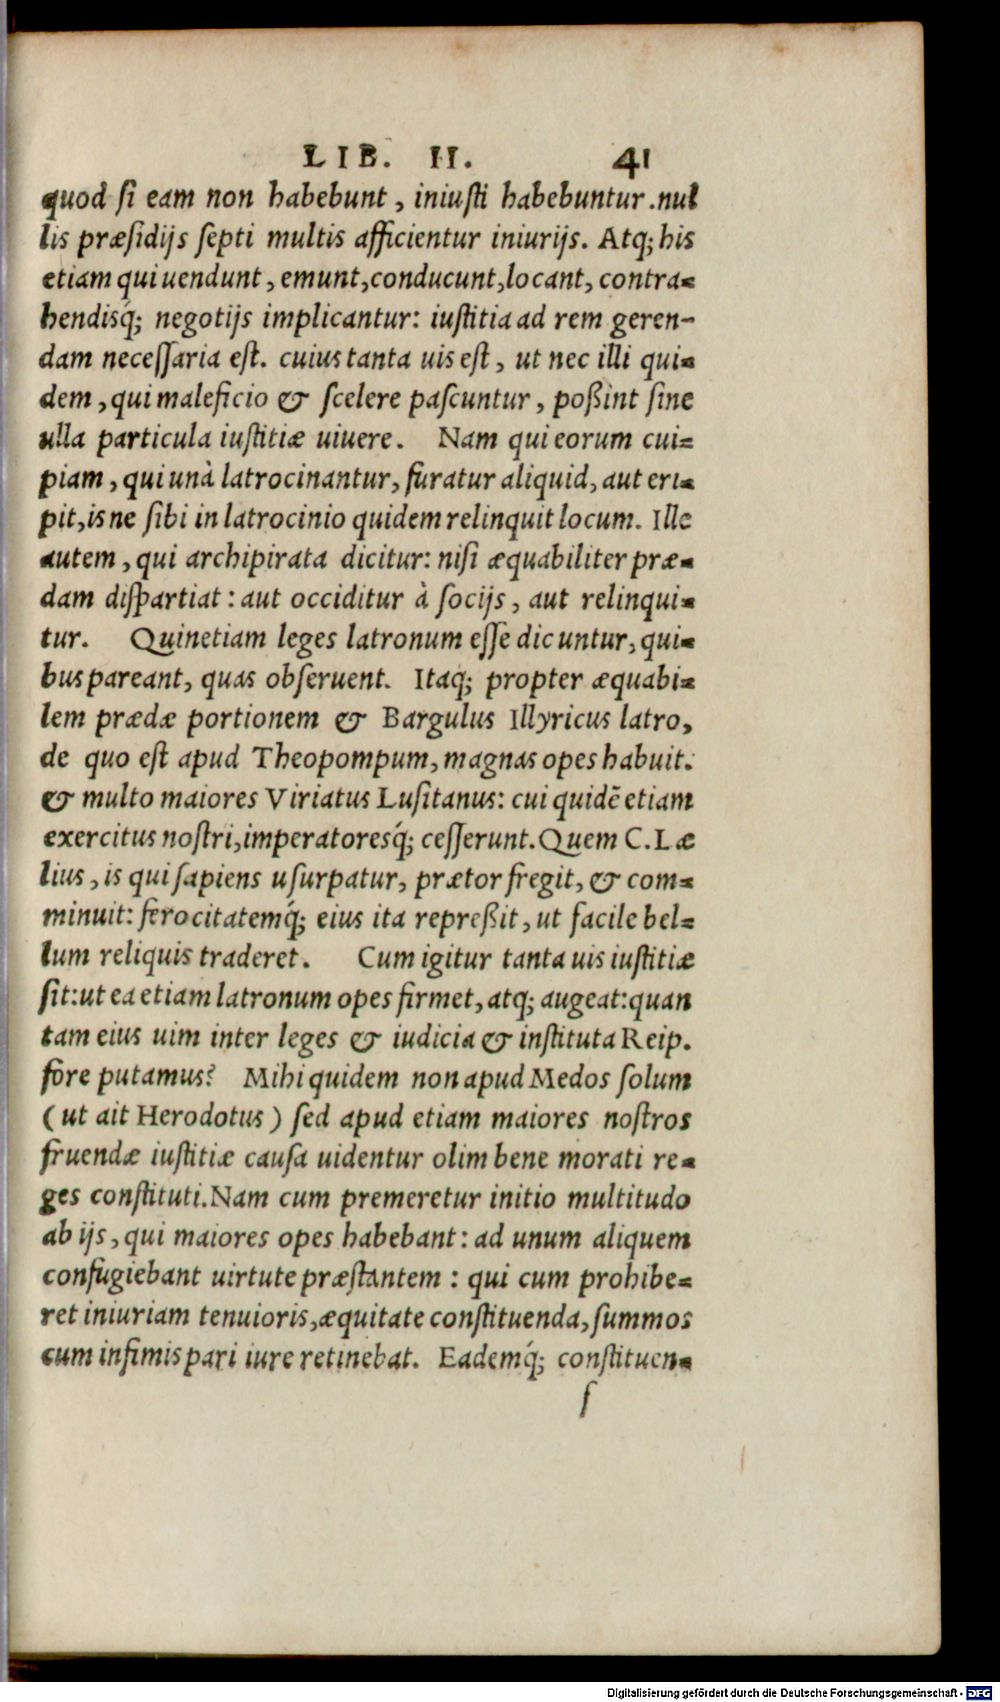 LIB. II. 41
quod si eam non habebunt, iniusti habebuntur. nul
lis præsidijs septi multis afficientur iniurijs. Atq; his
etiam qui uendunt, emunt, conducunt, locant, contra-
hendisq́; negotijs implicantur: iustitia ad rem geren-
dam necessaria est. cuius tanta uis est, ut nec illi qui-
dem, qui maleficio & scelere pascuntur, poßint sine
ulla particula iustitiæ uiuere. Nam qui eorum cui-
piam, qui unà latrocinantur, furatur aliquid, aut eri-
pit, is ne sibi in latrocinio quidem relinquit locum. Ille
autem, qui archipirata dicitur: nisi æquabiliter præ-
dam dispartiat: aut occiditur à socijs, aut relinqui-
tur. Quinetiam leges latronum esse dicuntur, qui-
bus pareant, quas obseruent. Itaq; propter æquabi-
lem prædæ portionem & Bargulus Illyricus latro,
de quo est apud Theopompum, magnas opes habuit.
& multo maiores Viriatus Lusitanus: cui quidē etiam
exercitus nostri, imperatoresq́; cesserunt. Quem C. Læ
lius, is qui sapiens usurpatur, prætor fregit, & com-
minuit: ferocitatemq́; eius ita repreßit, ut facile bel-
lum reliquis traderet. Cum igitur tanta uis iustitiæ
sit: ut ea etiam latronum opes firmet, atq; augeat: quan
tam eius uim inter leges & iudicia & instituta Reip.
fore putamus? Mihi quidem non apud Medos solum
(ut ait Herodotus) sed apud etiam maiores nostros
fruendæ iustitiæ causa uidentur olim bene morati re-
ges constituti. Nam cum premeretur initio multitudo
ab ijs, qui maiores opes habebant: ad unum aliquem
confugiebant uirtute præstantem: qui cum prohibe-
ret iniuriam tenuioris, æquitate constituenda, summos
cum infimis pari iure retinebat. Eademq́; constituen-
f
Digitalisierung gefördert durch die Deutsche Forschungsgemeinschaft - DFG